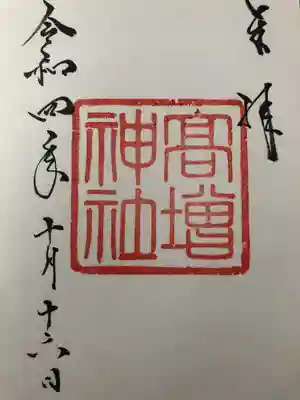 奉拝
髙増
神社
令和四年十月十六日